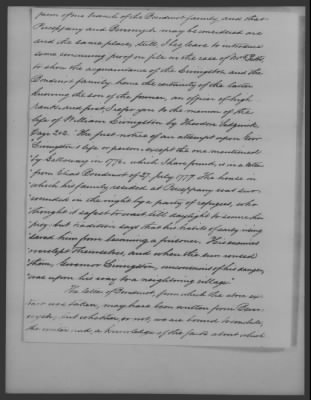 farm of one branch of the Boudinot family, and that
Parsippany and Baremyck may be considered one
and the same place, still, I beg leave to introduce
some convincing proof on file in the case of Mrs
to show the acquaintance of the Livingston and the
Boudinot families have the certainty of the latter
knowing the son of the former, an officer of high
rank, and first, I refer you to the memoir of the
life of William Livingston by Theodore Sedgwick
Page 322. "The first notice of an attempt upon Gov
Livingston's life or person, except the one mentioned
by Galloway in 1776. which I have found, is in a letter
from Elias Boudinot of 27 July 1777. The house in
which his family resided at Parsippany was sur-
rounded in the night by a party of refugees, who
thought it safest to wait till daylight to secure their
prey; but tradition says that his habits of early rising
saved him from becoming a prisoner. His enemies
overslept themselves, and when the sun roused
them, Governor Livingston, unconscious of his danger,
was upon his way to a neighboring village"
The letter of Boudinot, from which the above ex-
tract was taken, may have been written from
but whether, or not, we are bound to conclude,
the writer had, a knowledge of the facts about which